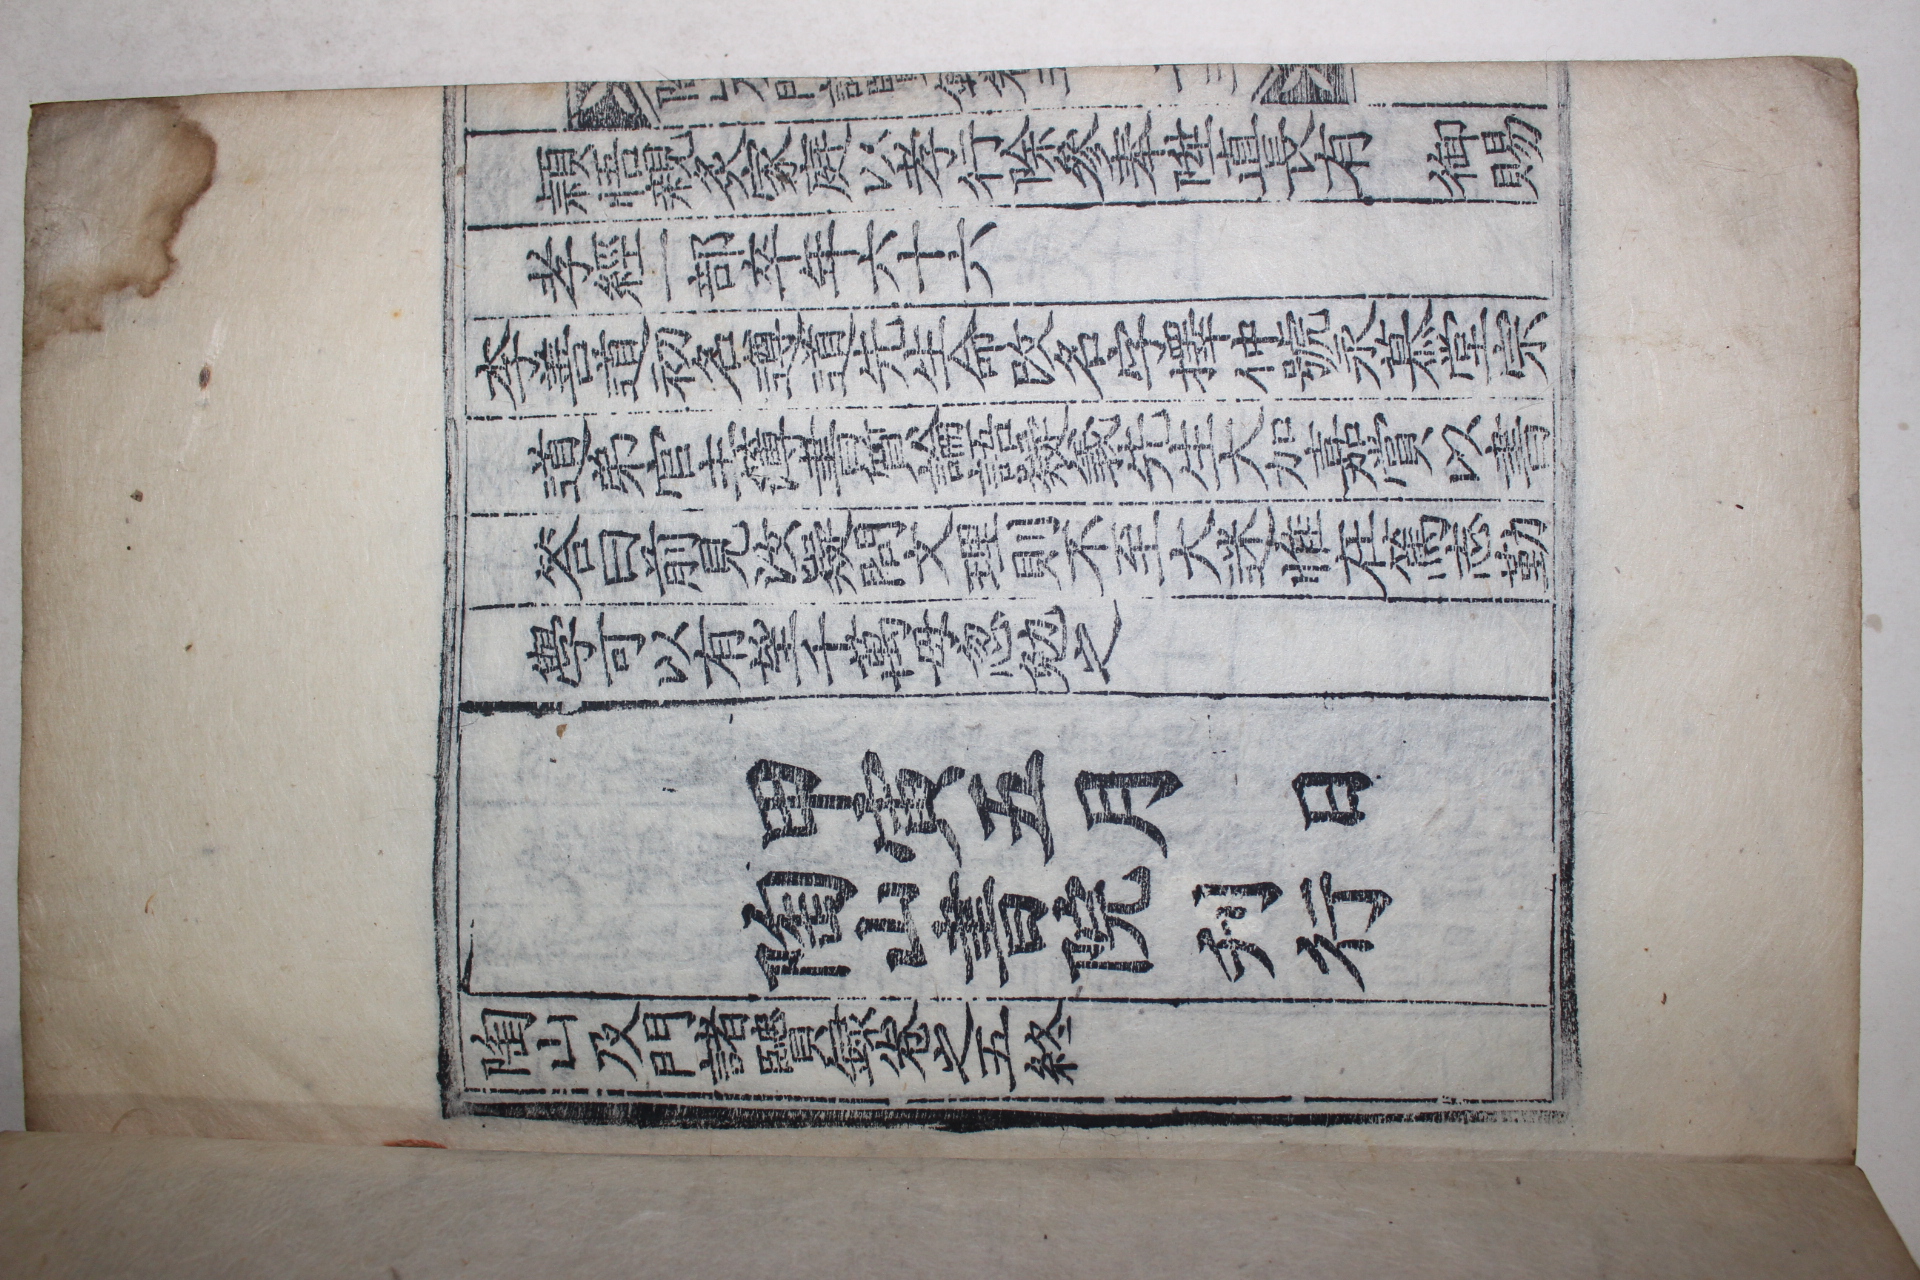 穎悟親炙家庭以孝行除參奉陞直長有 御賜
孝經一部卒年六十六
李善道初名遵道先生命改名字擇仲號永慕堂宗
道弟官主簿書質論語疑義先生大加嘉賞以書
答曰前見汝疑問文理則不至大迷惟在篤志勤
學可以有望千萬毋忽勉之
甲寅五月 日
陶山書院 刊行
陶山及門諸賢錄卷之五終